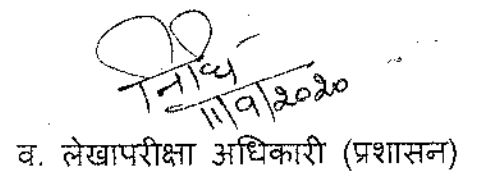 निधि
11/9/2020
व. लेखापरीक्षा अधिकारी (प्रशासन)